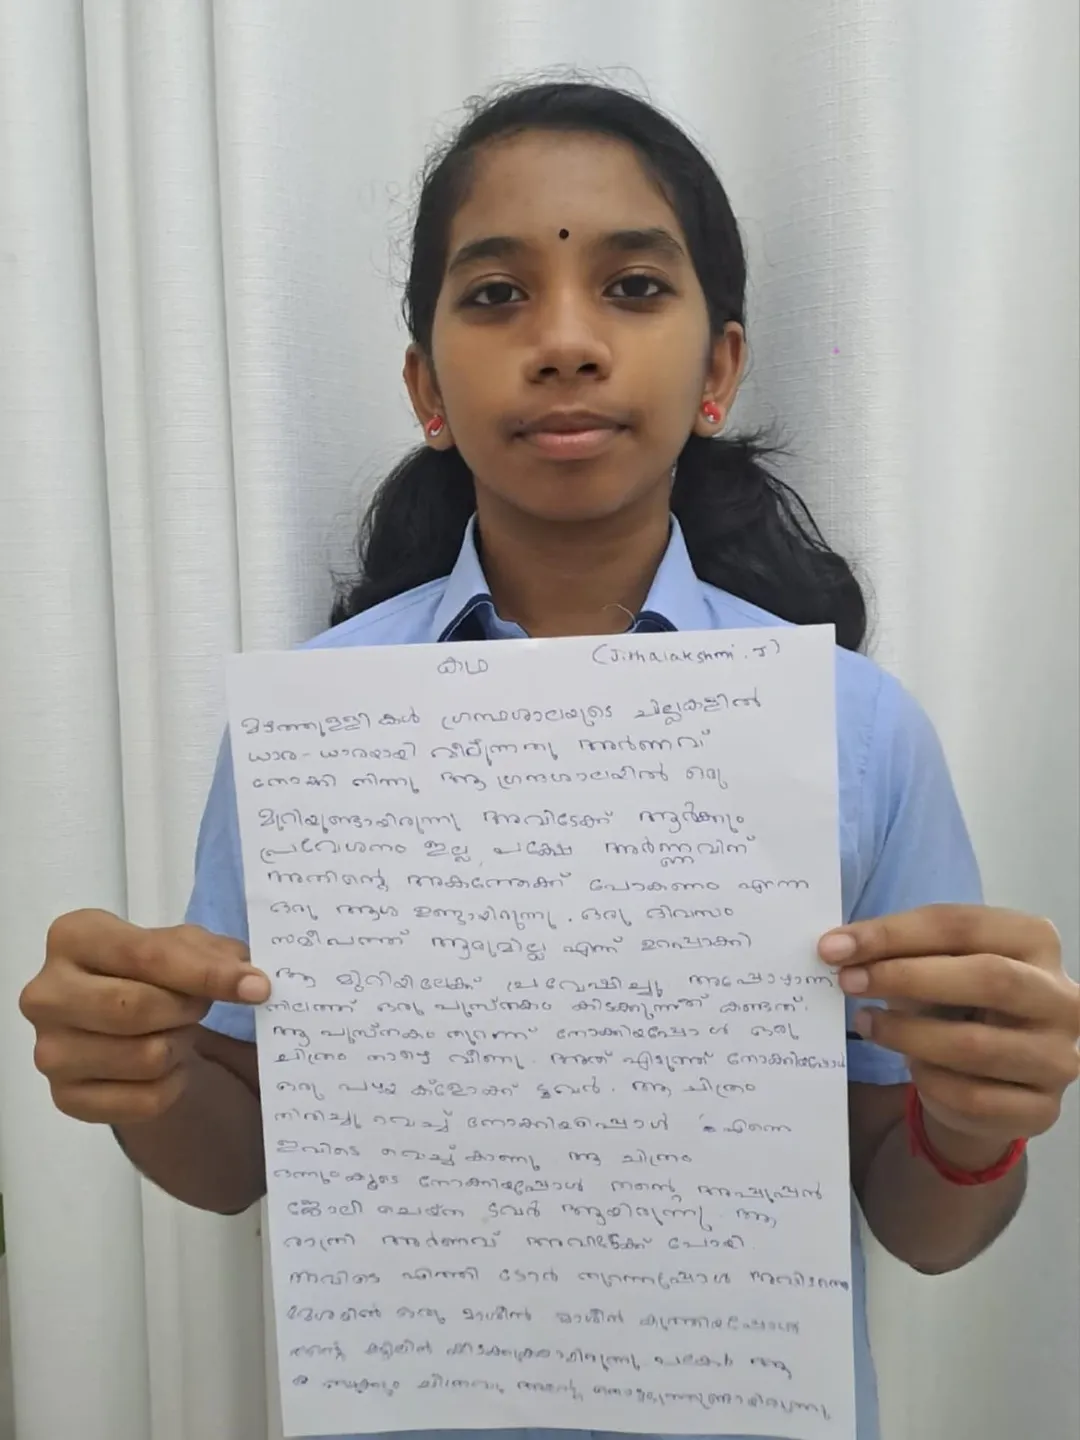 കഥ (Jithalakshmi.J)
മഴത്തുള്ളികൾ ഗ്രന്ഥശാലയുടെ ചില്ലകളിൽ
ധാര-ധാരയായി വീഴുന്നതു അർണവ്
നോക്കി നിന്നു ആ ഗ്രന്ഥശാലയിൽ ഒരു
മുറിയുണ്ടായിരുന്നു അവിടേക്ക് ആർക്കും
പ്രവേശനം ഇല്ല, പക്ഷേ അർണ്ണവിന്
അതിന്റെ അകത്തേക്ക് പോകണം എന്ന
ഒരു ആശ ഉണ്ടായിരുന്നു. ഒരു ദിവസം
സമീപത്ത് ആരുമില്ല എന്ന് ഉറപ്പാക്കി
ആ മുറിയിലേക്ക് പ്രവേഷിച്ചു അപ്പോഴാണ്
നിലത്ത് ഒരു പുസ്തകം കിടക്കുന്നത് കണ്ടത്.
ആ പുസ്തകം തുറന്ന് നോക്കിയപ്പോൾ ഒരു
ചിത്രം താഴെ വീണു. അത് എടുത്ത് നോക്കിയപ്പോൾ
ഒരു പഴയ ക്ളോക്ക് ടൂവൻ. ആ ചിത്രം
തിരിച്ചു വെച്ച് നോക്കിയപ്പൊൾ എന്നെ
ഇവിടെ വെച്ച് കാണു ആ ചിത്രം
ഒന്നുംകൂടെ നോക്കിയപ്പോൾ തന്റെ അപ്പൂപ്പൻ
ജോലി ചെയ്ത ടവർ ആയിരുന്നു. ആ
രാത്രി അർണവ് അവിടേക്ക് പോയി.
അവിടെ എത്തി ഡോർ തുറന്നപ്പോൾ
ഒരു മാശീൻ
തന്റെ കട്ടിലിൽ കിടക്കുകയായിരുന്നു പക്ഷേ ആ